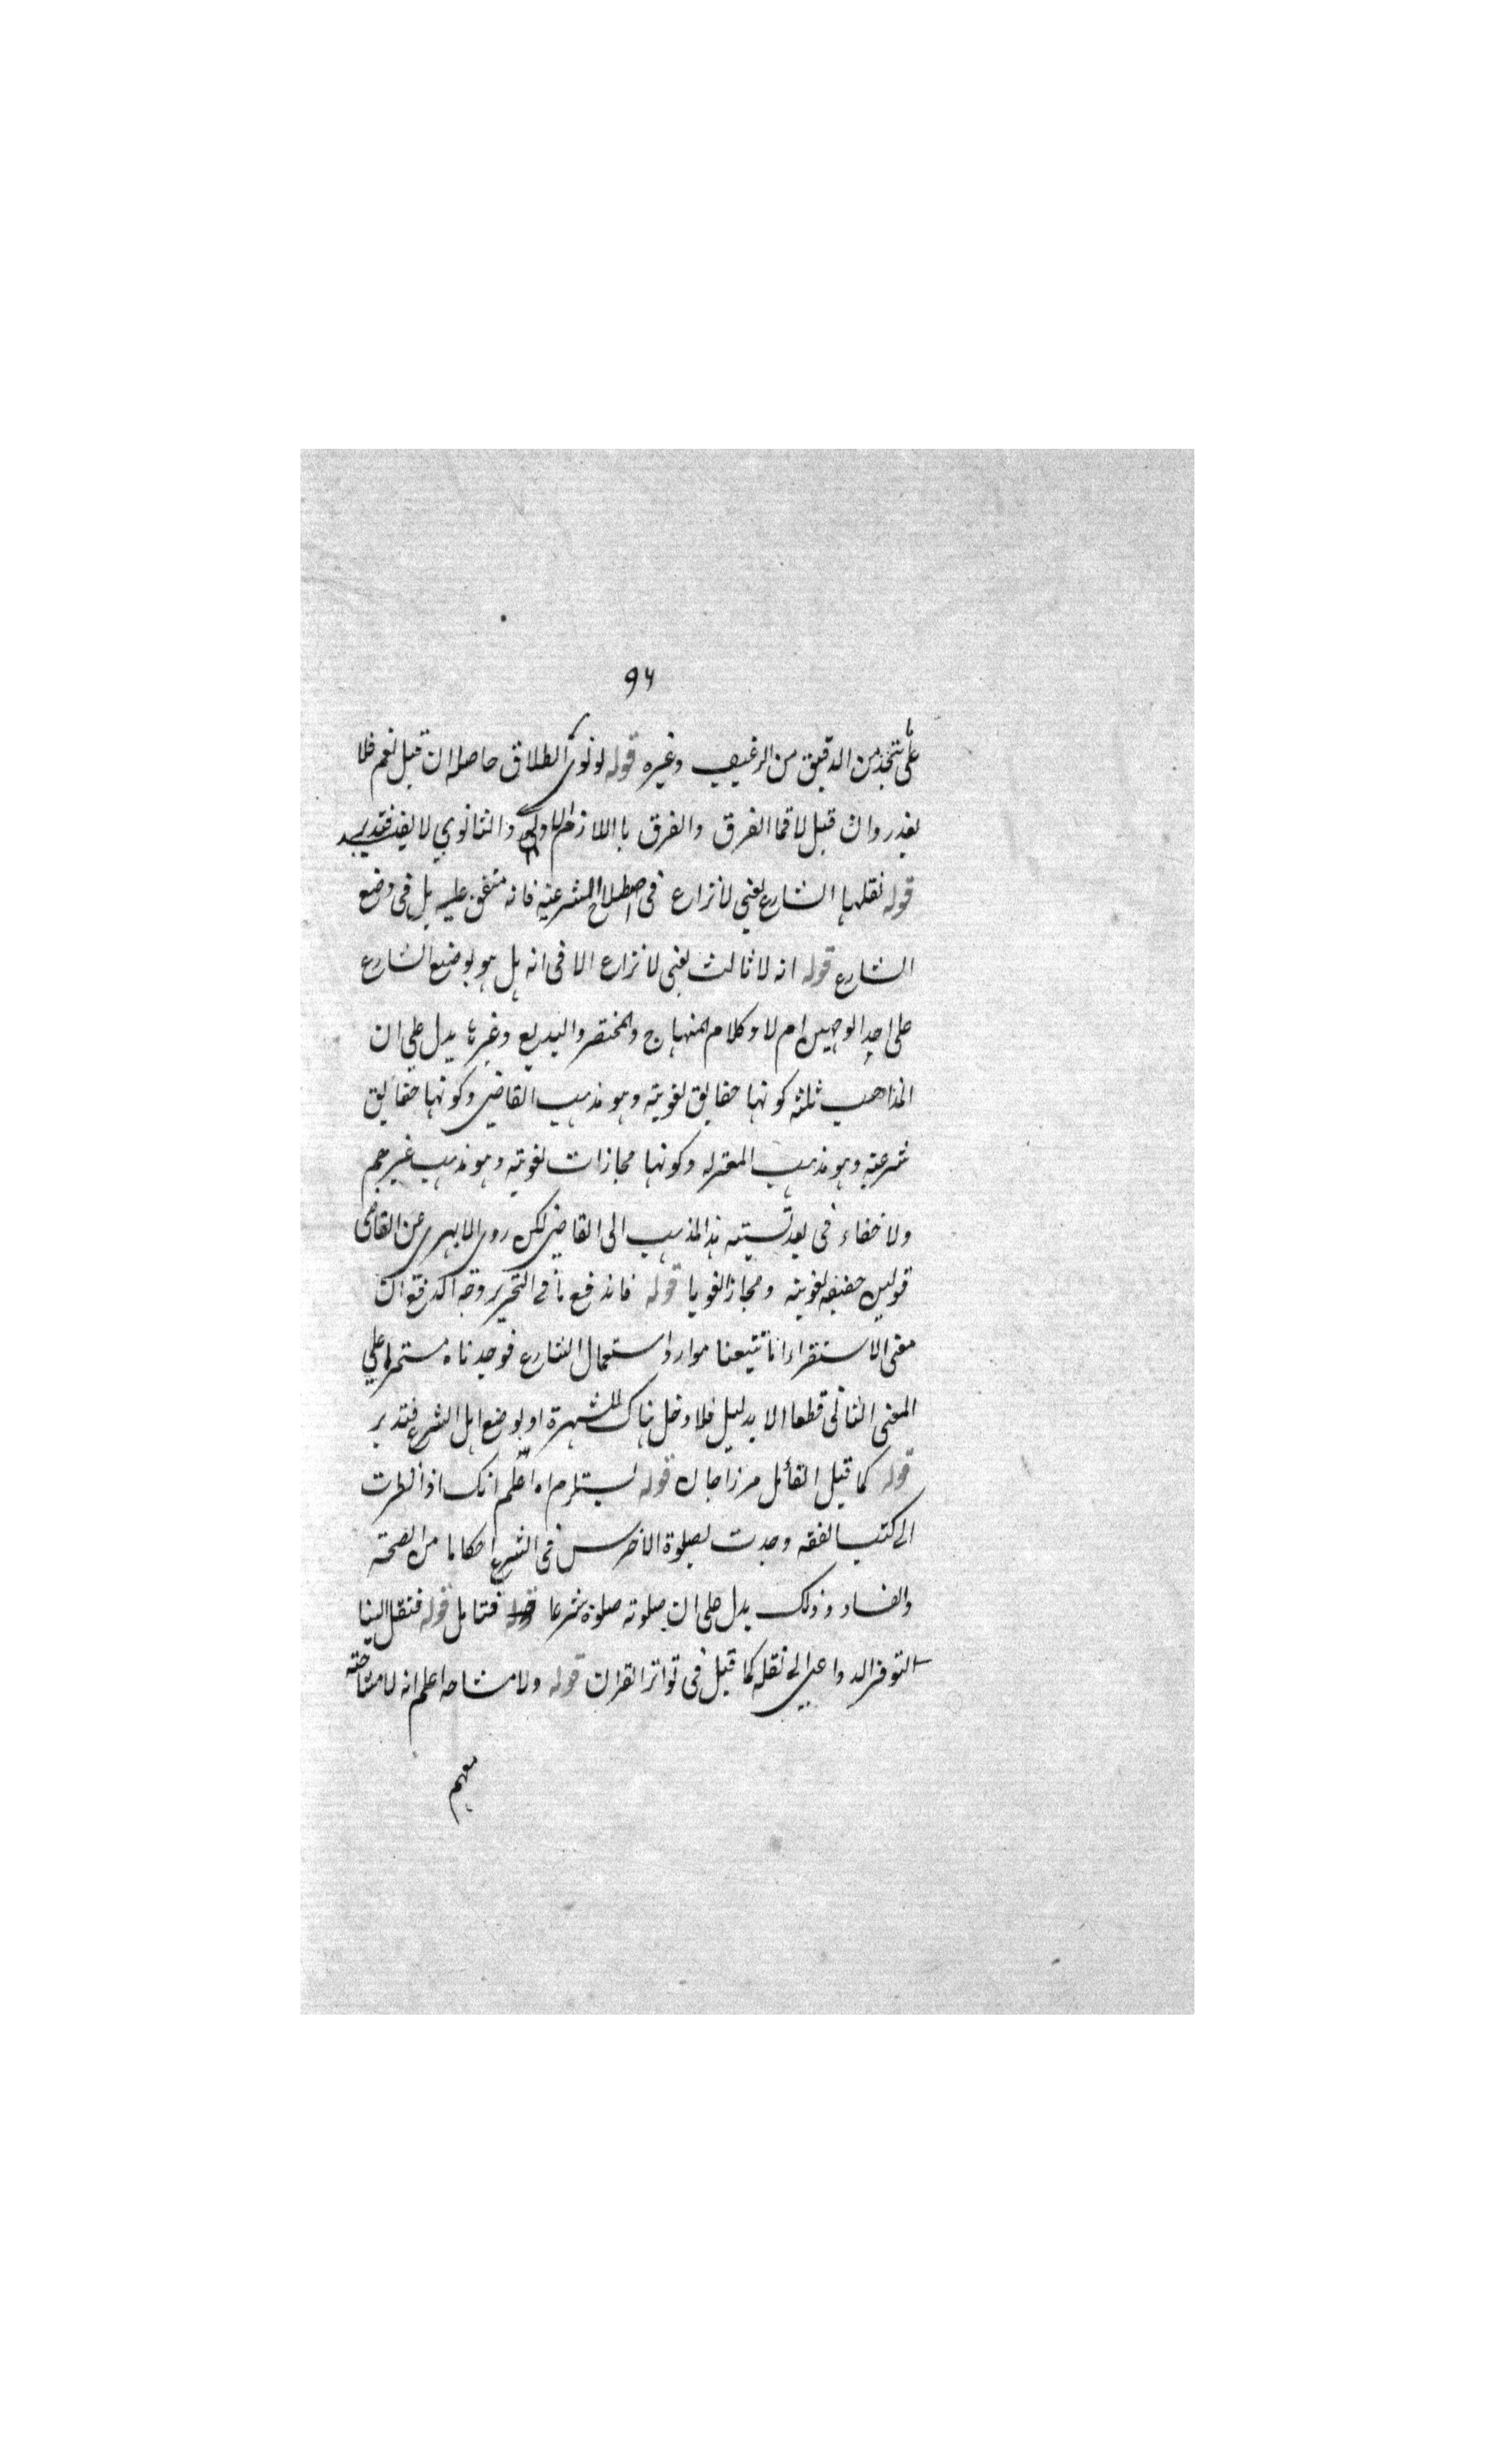 ۹۶
على ما يتخذ من الدقيق من الرغيف وغيره قوله لو نوى الطلاق حاصله ان قيل نعم فلا
يغدر وان قيل لا فما الفرق والفرق با اللازم الاولى والثانوي لا يفيد فتدبر
قوله نقلها الشارع يعنى لا نزاع فى اصطلاح الشرعية فانه متفق عليه بل فى وضع
الشارع قوله انه لا ثالث يعنى لا نزاع الا فى انه هل هو بوضع الشارع
على احد الوجهين ام لا وكلام المنهاج والمختصر والبديع وغيرها يدل على ان
المذاهب ثلثة كونها حقايق لغوية وهو مذهب القاضى وكونها حقايق
شرعية وهو مذهب المعتزله وكونها مجازات لغوية وهو مذهب غيرهم
ولا خفاء فى بعد نسبته هذا المذهب الى القاضى لكن روى الابهرى عن القاضى
قولين حقيقه لغوية ومجازا لغويا قوله فاندفع ما فى التحرير وجه الدفع ان
معنى الاستقراء انا تتبعنا موارد استعمال الشارع فوجدناه مستمرا على
المعنى الثانى قطعا الا بدليل فلا دخل هناك للشهرة او بوضع اهل الشرع فتدبر
قوله كما قيل القائل مرزا جان قوله يستلزم اه اعلم انك اذا نظرت
الى كتب الفقه وجدت لصلوة الاخرس فى الشرع احكاما من الصحة
والفساد وذلك يدل على ان صلوته صلوة شرعا فتامل قوله فنقل الينا
لتوفر الدواعى الى نقله كما قيل فى تواتر القران قوله ولا مشاحه اعلم انه لا مشاحته
معهم